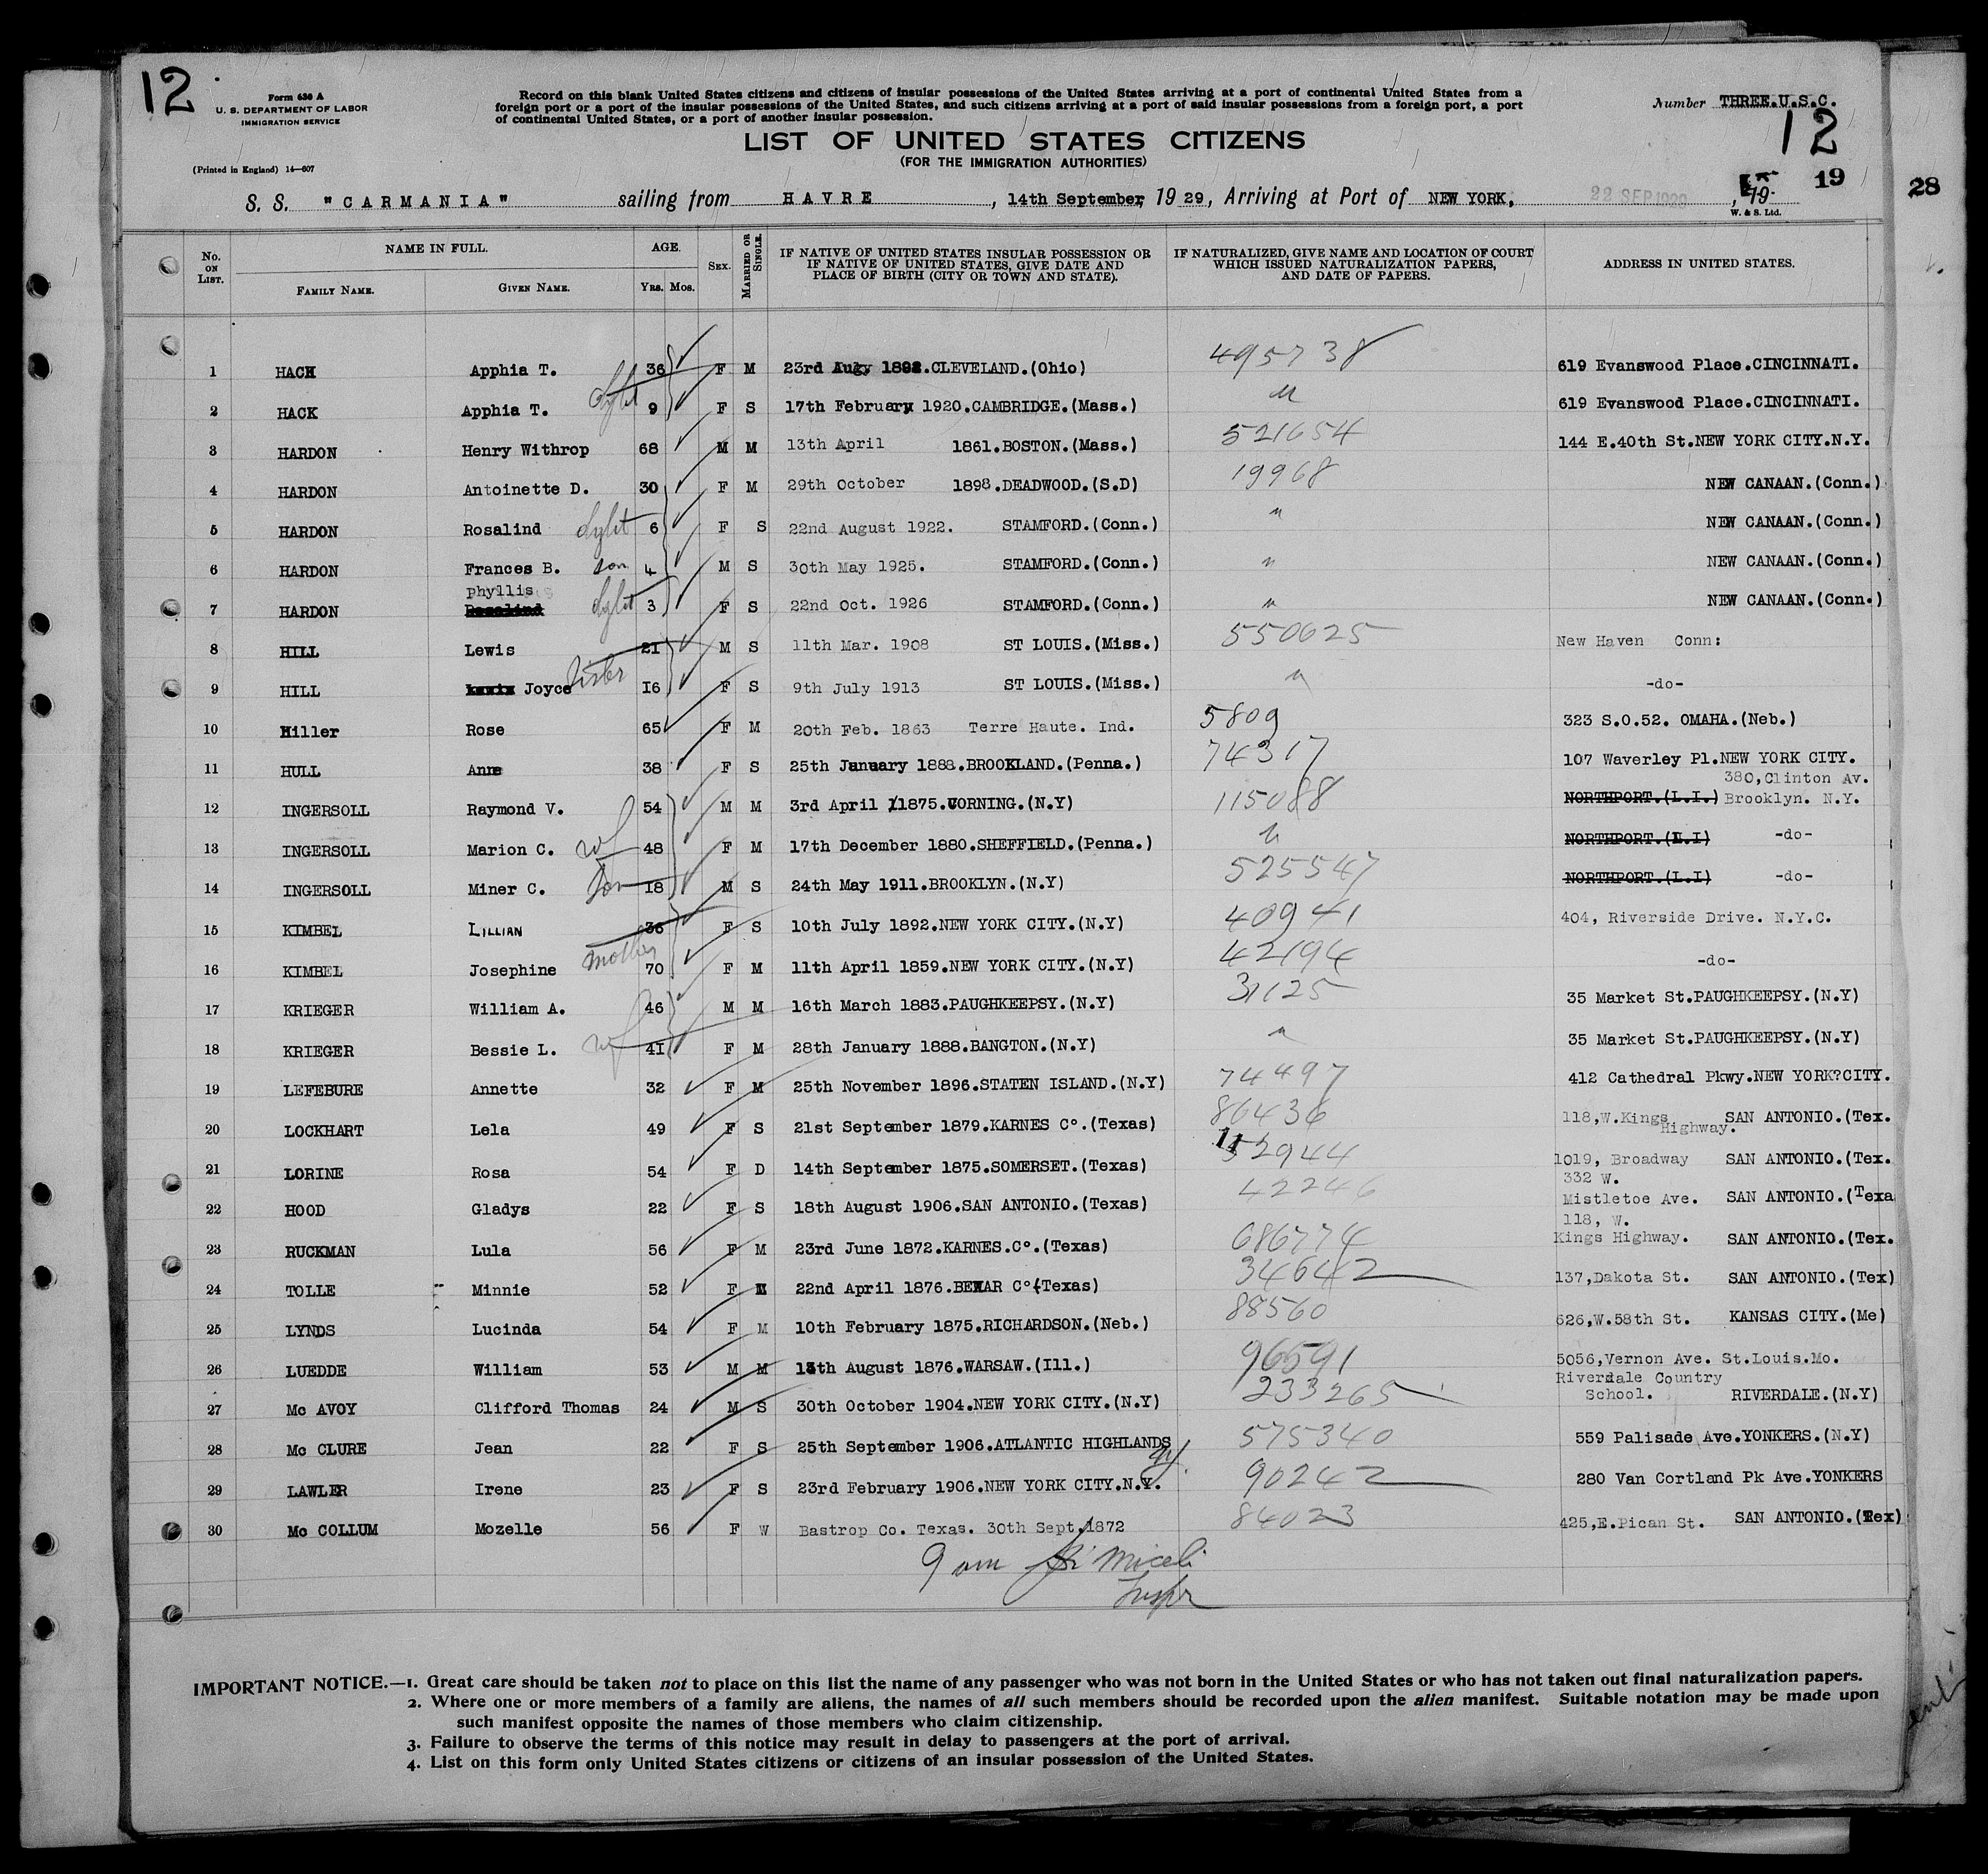 12
Form 630 A
U. S. DEPARTMENT OF LABOR
IMMIGRATION SERVICE
(Printed in England) 14—607
Record on this blank United States citizens and citizens of insular possessions of the United States arriving at a port of continental United States from a
foreign port or a port of the insular possessions of the United States, and such citizens arriving at a port of said insular possessions from a foreign port, a port
of continental United States, or a port of another insular possession.
Number THREE.U.S.C.
12
LIST OF UNITED STATES CITIZENS
(FOR THE IMMIGRATION AUTHORITIES)
19
28
S. S. "CARMANIA" sailing from HAVRE, 14th September, 1929, Arriving at Port of NEW YORK, 22 SEP 1929, 19
W. & S. Ltd.
No. ON LIST. NAME IN FULL. FAMILY NAME. GIVEN NAME. AGE. YRS. MOS. SEX. MARRIED OR SINGLE. IF NATIVE OF UNITED STATES INSULAR POSSESSION OR IF NATIVE OF UNITED STATES, GIVE DATE AND PLACE OF BIRTH (CITY OR TOWN AND STATE). IF NATURALIZED, GIVE NAME AND LOCATION OF COURT WHICH ISSUED NATURALIZATION PAPERS, AND DATE OF PAPERS. ADDRESS IN UNITED STATES.
1 HACK Apphia T. 36 F M 23rd Augy 1892.CLEVELAND.(Ohio) 495738 619 Evanswood Place.CINCINNATI.
2 HACK Apphia T. 9 F S 17th February 1920.CAMBRIDGE.(Mass.) " 619 Evanswood Place.CINCINNATI.
3 HARDON Henry Withrop 68 M M 13th April 1861.BOSTON.(Mass.) 521654 144 E.40th St.NEW YORK CITY.N.Y.
4 HARDON Antoinette D. 30 F M 29th October 1898.DEADWOOD.(S.D) 19968 NEW CANAAN.(Conn.)
5 HARDON Rosalind 6 F S 22nd August 1922. STAMFORD.(Conn.) " NEW CANAAN.(Conn.)
6 HARDON Frances B. son 4 M S 30th May 1925. STAMFORD.(Conn.) " NEW CANAAN.(Conn.)
phyllis
7 HARDON Rosalind 3 F S 22nd Oct. 1926 STAMFORD.(Conn.) " NEW CANAAN.(Conn.)
8 HILL Lewis 21 M S 11th Mar. 1908 ST LOUIS.(Miss.) 550625 New Haven Conn:
9 HILL Lewis Joyce sister 16 F S 9th July 1913 ST LOUIS.(Miss.) " -do-
10 Hiller Rose 65 F M 20th Feb. 1863 Terre Haute. Ind. 5809 323 S.O.52. OMAHA.(Neb.)
11 HULL Anne 38 F S 25th January 1888.BROOKLAND.(Penna.) 74317 107 Waverley Pl.NEW YORK CITY.
380,Clinton Av.
12 INGERSOLL Raymond V. 54 M M 3rd April 1875.CORNING.(N.Y) 115088 NORTHPORT.(L.I.) Brooklyn. N.Y.
13 INGERSOLL Marion C. wf 48 F M 17th December 1880.SHEFFIELD.(Penna.) " NORTHPORT.(L.I) -do-
14 INGERSOLL Miner C. son 18 M S 24th May 1911.BROOKLYN.(N.Y) 525547 NORTHPORT.(L.I) -do-
15 KIMBEL LILLIAN 36 F S 10th July 1892.NEW YORK CITY.(N.Y) 40941 404, Riverside Drive. N.Y.C.
16 KIMBEL Josephine mother 70 F M 11th April 1859.NEW YORK CITY.(N.Y) 42194 -do-
17 KRIEGER William A. 46 M M 16th March 1883.PAUGHKEEPSY.(N.Y) 31125 35 Market St.PAUGHKEEPSY.(N.Y)
18 KRIEGER Bessie L. wf 41 F M 28th January 1888.BANGTON.(N.Y) " 35 Market St.PAUGHKEEPSY.(N.Y)
19 LEFEBURE Annette 32 F M 25th November 1896.STATEN ISLAND.(N.Y) 74497 412 Cathedral Pkwy.NEW YORK?CITY.
20 LOCKHART Lela 49 F S 21st September 1879.KARNES Co.(Texas) 86436 118,W.Kings Highway. SAN ANTONIO.(Tex.
21 LORINE Rosa 54 F D 14th September 1875.SOMERSET.(Texas) 1019, Broadway SAN ANTONIO.(Tex.
332 W.
22 HOOD Gladys 22 F S 18th August 1906.SAN ANTONIO.(Texas) 42246 Mistletoe Ave. SAN ANTONIO.(Texa
118, W.
23 RUCKMAN Lula 56 F M 23rd June 1872.KARNES.Co.(Texas) 686774 Kings Highway. SAN ANTONIO.(Tex.
24 TOLLE Minnie 52 F M 22nd April 1876.BEXAR Co.(Texas) 34642 137,Dakota St. SAN ANTONIO.(Tex)
25 LYNDS Lucinda 54 F M 10th February 1875.RICHARDSON.(Neb.) 88560 626,W.58th St. KANSAS CITY.(Me)
26 LUEDDE William 53 M M 13th August 1876.WARSAW.(Ill.) 96591 5056,Vernon Ave. St.Louis.Mo.
Riverdale Country
27 Mc AVOY Clifford Thomas 24 M S 30th October 1904.NEW YORK CITY.(N.Y) 233265 School. RIVERDALE.(N.Y)
28 Mc CLURE Jean 22 F S 25th September 1906.ATLANTIC HIGHLANDS NJ. 575340 559 Palisade Ave.YONKERS.(N.Y)
29 LAWLER Irene 23 F S 23rd February 1906.NEW YORK CITY.N.Y. 90242 280 Van Cortland Pk Ave.YONKERS
30 Mc COLLUM Mozelle 56 F W Bastrop Co. Texas. 30th Sept.1872 84023 425,E.Pican St. SAN ANTONIO.(Tex)
9 am Miceli
Inspr
IMPORTANT NOTICE.—1. Great care should be taken not to place on this list the name of any passenger who was not born in the United States or who has not taken out final naturalization papers.
2. Where one or more members of a family are aliens, the names of all such members should be recorded upon the alien manifest. Suitable notation may be made upon
such manifest opposite the names of those members who claim citizenship.
3. Failure to observe the terms of this notice may result in delay to passengers at the port of arrival.
4. List on this form only United States citizens or citizens of an insular possession of the United States.